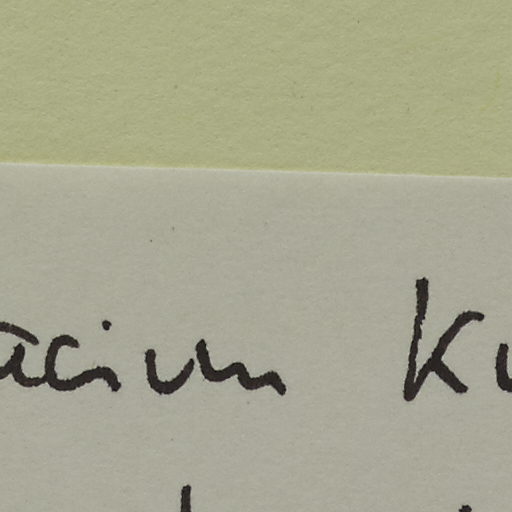 acium Ku